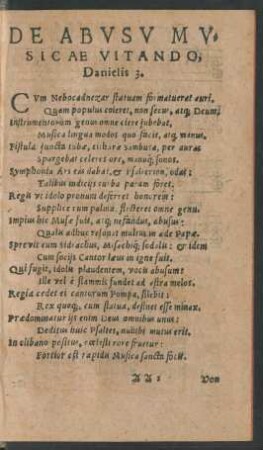 DE ABVSV MV,
SICAE VITANDO,
Danielis 3.
CVm Nebocadnezar statuam formatuerat auri,
Quam populus coleret, non secus, atq; Deum;
Instrumentorum genus omne ciere jubebat,
Musica lingua modos quo facit, atq; manus.
Fistula juncta tuba, cithara sambuca, per auras
Spargebat celeres ore, manuq; sonos.
Symphona Ars
Talibus indicijs turba parum foret.
Regii vt idolo pronum deferret honorem:
Supplice cum palma flecteret omne genu.
Impius hic Musae fuit, atq; nefandus, abusus:
Qualis adhuc resonat multus in aede Papae.
Sprevit eum Sidrachus, Misachiq; sodalis: & idem
Cum socijs Cantor laus in igne fuit.
Qui fugit, idolu plaudentem, vocis abusum:
Ille vel è flammis fundet ad astra melos.
Regia cedet ei cantorum Pompa, silebit:
Rex quoq;, cum statua, desinet esse minax.
Praedominatur ijs enim Deus omnibus unus:
Deditus huic Psaltes, nullibi mutus erit.
In clibano positus, coelesti rore fruetur:
Fortior est rapidis Musica sancta focis.
AA 2
Von